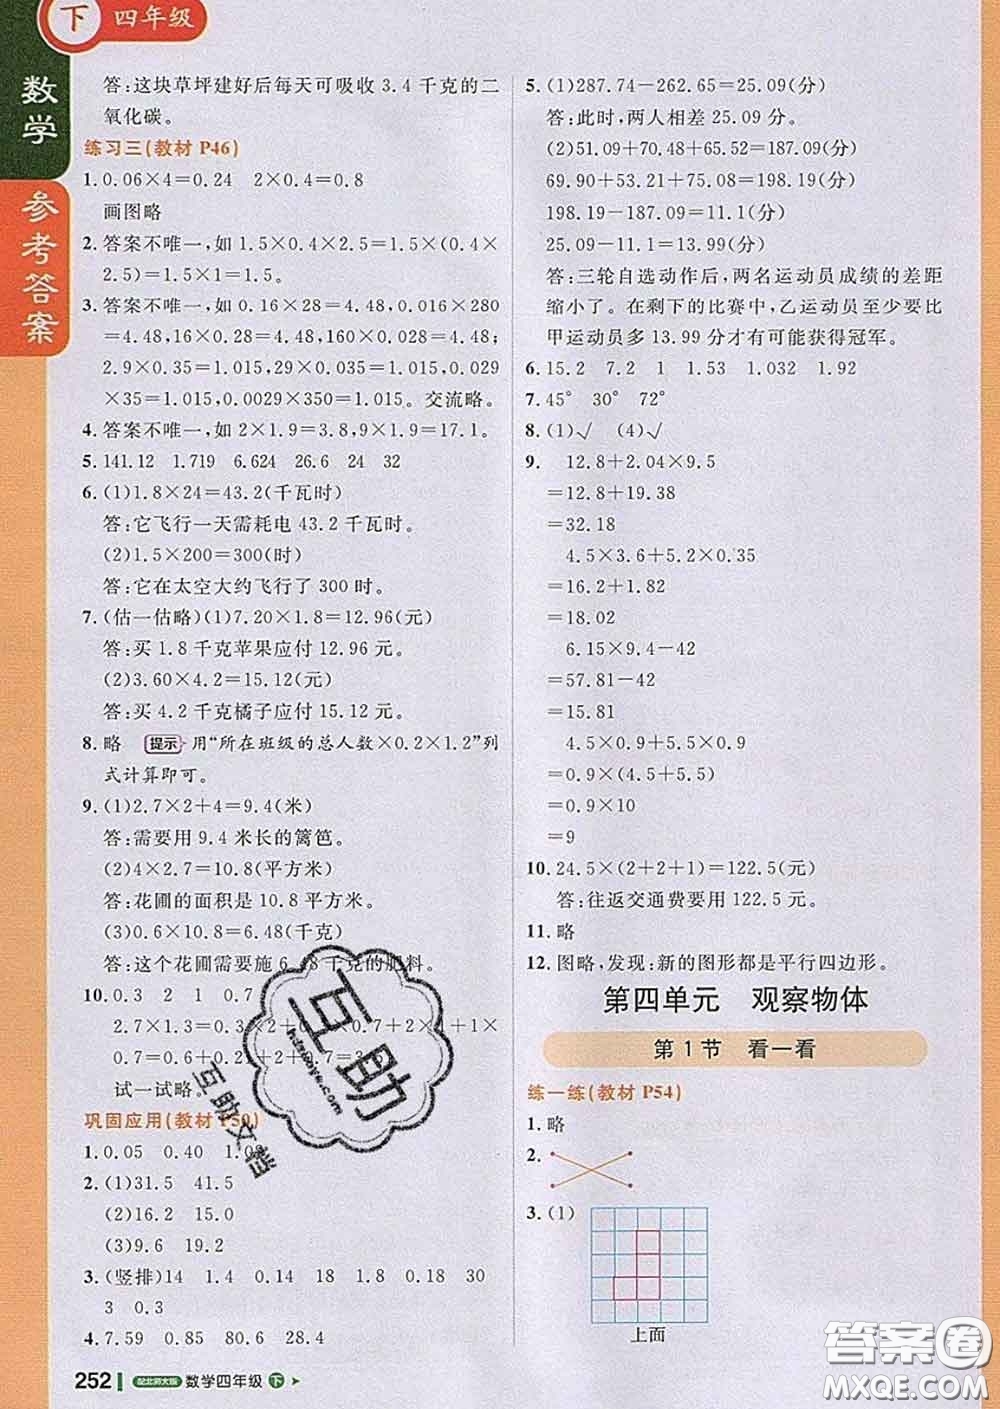 下 四年级
数学
参考答案
答:这块草坪建好后每天可吸收 3.4 千克的二
氧化碳。
练习三(教材 P46)
1. 0.06×4=0.24 2×0.4=0.8
画图略
2. 答案不唯一,如 1.5×0.4×2.5=1.5×(0.4×
2.5)=1.5×1=1.5。
3. 答案不唯一,如 0.16×28=4.48,0.016×280
=4.48,16×0.28=4.48,160×0.028=4.48;
2.9×0.35=1.015,29×0.035=1.015,0.029
×35=1.015,0.0029×350=1.015。交流略。
4. 答案不唯一,如 2×1.9=3.8,9×1.9=17.1。
5. 141.12 1.719 6.624 26.6 24 32
6. (1)1.8×24=43.2(千瓦时)
答:它飞行一天需耗电 43.2 千瓦时。
(2)1.5×200=300(时)
答:它在太空大约飞行了 300 时。
7. (估一估略)(1)7.20×1.8=12.96(元)
答:买 1.8 千克苹果应付 12.96 元。
(2)3.60×4.2=15.12(元)
答:买 4.2 千克橘子应付 15.12 元。
8. 略 提示 用“所在班级的总人数×0.2×1.2”列
式计算即可。
9. (1)2.7×2+4=9.4(米)
答:需要用 9.4 米长的篱笆。
(2)4×2.7=10.8(平方米)
答:花圃的面积是 10.8 平方米。
(3)0.6×10.8=6.48(千克)
答:这个花圃需要施 6.48 千克的肥料。
10. 0.3 2 1 0.7
2.7×1.3=0.3×0.7+2×1+2×0.3+1×
0.7=0.21+2+0.6+0.7=3.51
试一试略。
巩固应用(教材 P50)
1. 0.05 0.40 1.08
2. (1)31.5 41.5
(2)16.2 15.0
(3)9.6 19.2
3. (竖排)14 1.4 0.14 18 1.8 0.18 30
3 0.3
4. 7.59 0.85 80.6 28.4
252 配北师大版 数学四年级 下
5. (1)287.74−262.65=25.09(分)
答:此时,两人相差 25.09 分。
(2)51.09+70.48+65.52=187.09(分)
69.90+53.21+75.08=198.19(分)
198.19−187.09=11.1(分)
25.09−11.1=13.99(分)
答:三轮自选动作后,两名运动员成绩的差距
缩小了。在剩下的比赛中,乙运动员至少要比
甲运动员多 13.99 分才有可能获得冠军。
6. 15.2 7.2 1 1.53 1.032 1.92
7. 45° 30° 72°
8. (1)√ (4)√
9. 12.8+2.04×9.5
=12.8+19.38
=32.18
4.5×3.6+5.2×0.35
=16.2+1.82
=18.02
6.15×9.4−42
=57.81−42
=15.81
4.5×0.9+5.5×0.9
=0.9×(4.5+5.5)
=0.9×10
=9
10. 24.5×(2+2+1)=122.5(元)
答:往返交通费要用 122.5 元。
11. 略
12. 图略,发现:新的图形都是平行四边形。
第四单元 观察物体
第 1 节 看一看
练一练(教材 P54)
1. 略
2.
3. (1)
上面
互助
hdzuoye.com
互助文档
答案圈
MXQE.COM